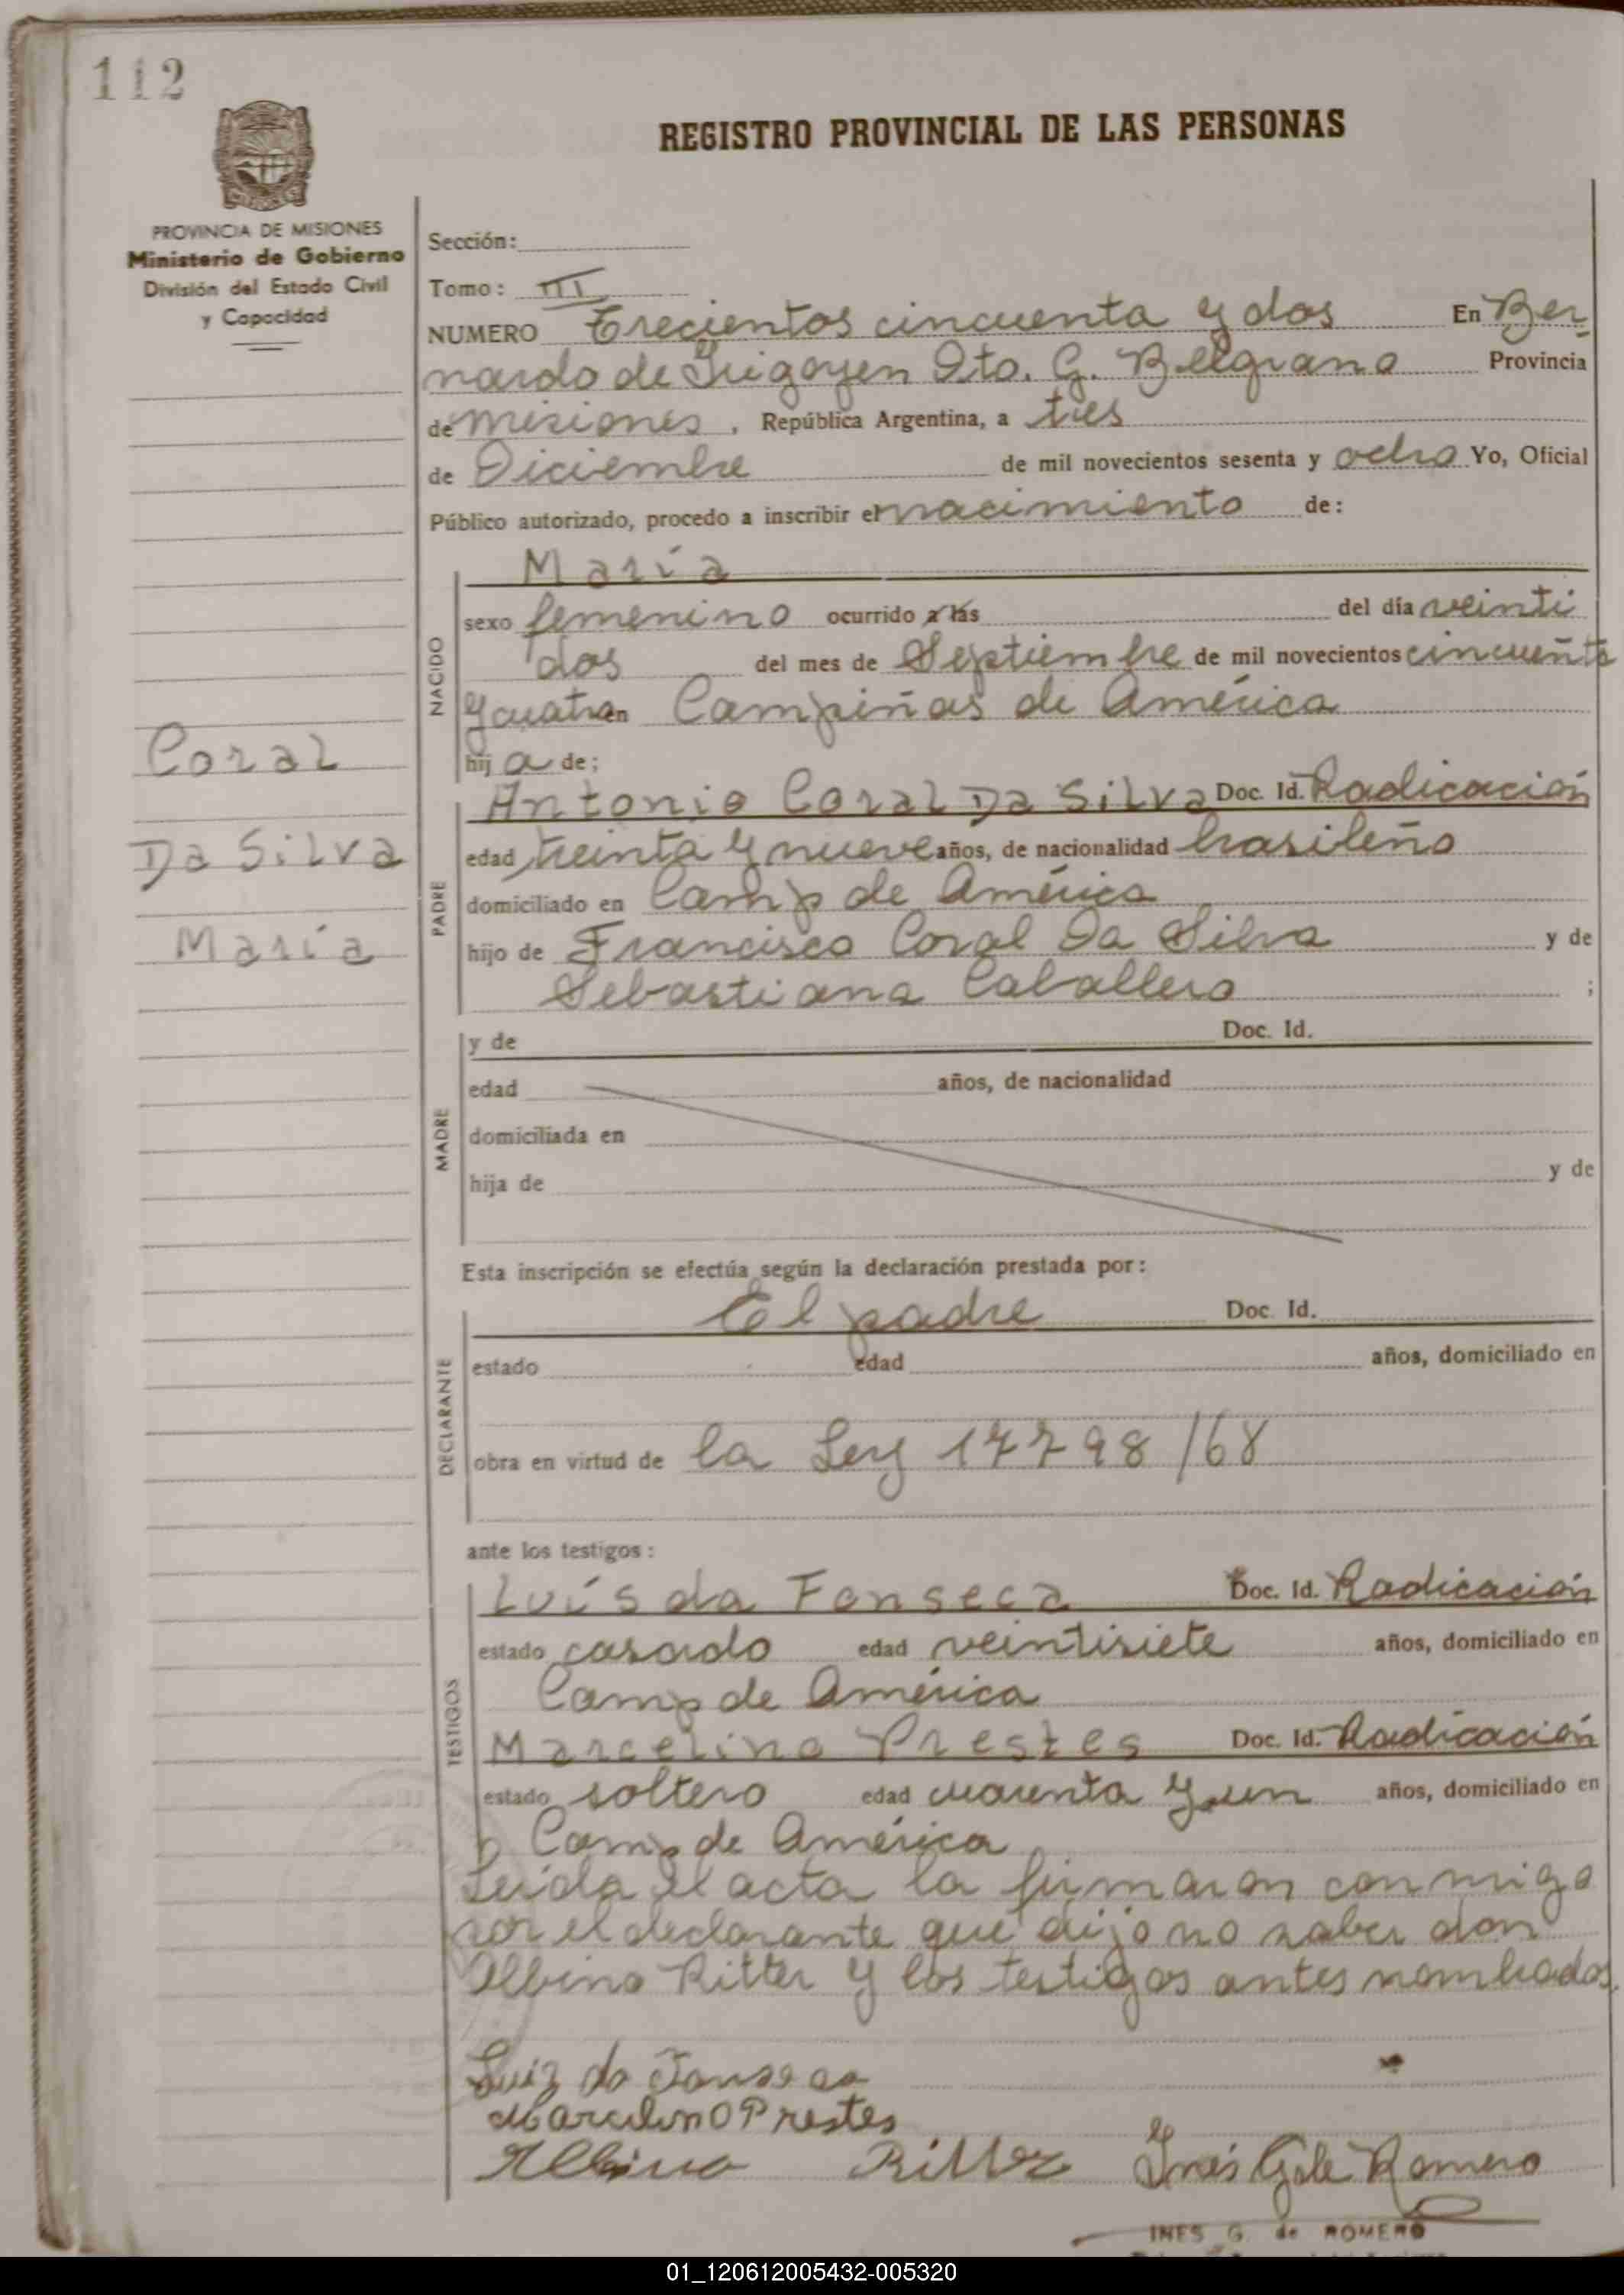 112
REGISTRO PROVINCIAL DE LAS PERSONAS
PROVINCIA DE MISIONES
Ministerio de Gobierno
División del Estado Civil
y Capacidad
Coral
Da Silva
María
Sección:
Tomo: III
NUMERO Trecientos cincuenta y dos En Ber
nardo de Irigoyen Dto. G. Belgrano Provincia
de misiones, República Argentina, a tres
de Diciembre de mil novecientos sesenta y ocho Yo, Oficial
Público autorizado, procedo a inscribir el nacimiento de:
NACIDO
María
sexo femenino ocurrido a las del día veinti
dos del mes de Septiembre de mil novecientos cincuenta
y cuatro en Campiñas de América
hij a de;
PADRE
Antonio Coral Da Silva Doc. Id. Radicación
edad treinta y nueve años, de nacionalidad brasileño
domiciliado en Camp de América
hijo de Francisco Coral Da Silva y de
Sebastiana Caballero ;
MADRE
y de Doc. Id.
edad años, de nacionalidad
domiciliada en
hija de y de
Esta inscripción se efectúa según la declaración prestada por:
DECLARANTE
El padre Doc. Id.
estado edad años, domiciliado en
obra en virtud de la Ley 17798/68
ante los testigos:
TESTIGOS
Luís da Fonseca Doc. Id. Radicación
estado casado edad veintisiete años, domiciliado en
Camp de América
Marcelino Prestes Doc. Id. Radicación
estado soltero edad cuarenta y un años, domiciliado en
Camp de América
Leída el acta la firmaron conmigo
por el declarante que dijo no saber don
Albino Ritter y los testigos antes nombrados.
Luiz da Fonseca
Marcelino Prestes
Albino Ritter Inés G. de Romero
INES G. de ROMERO
01_120612005432-005320